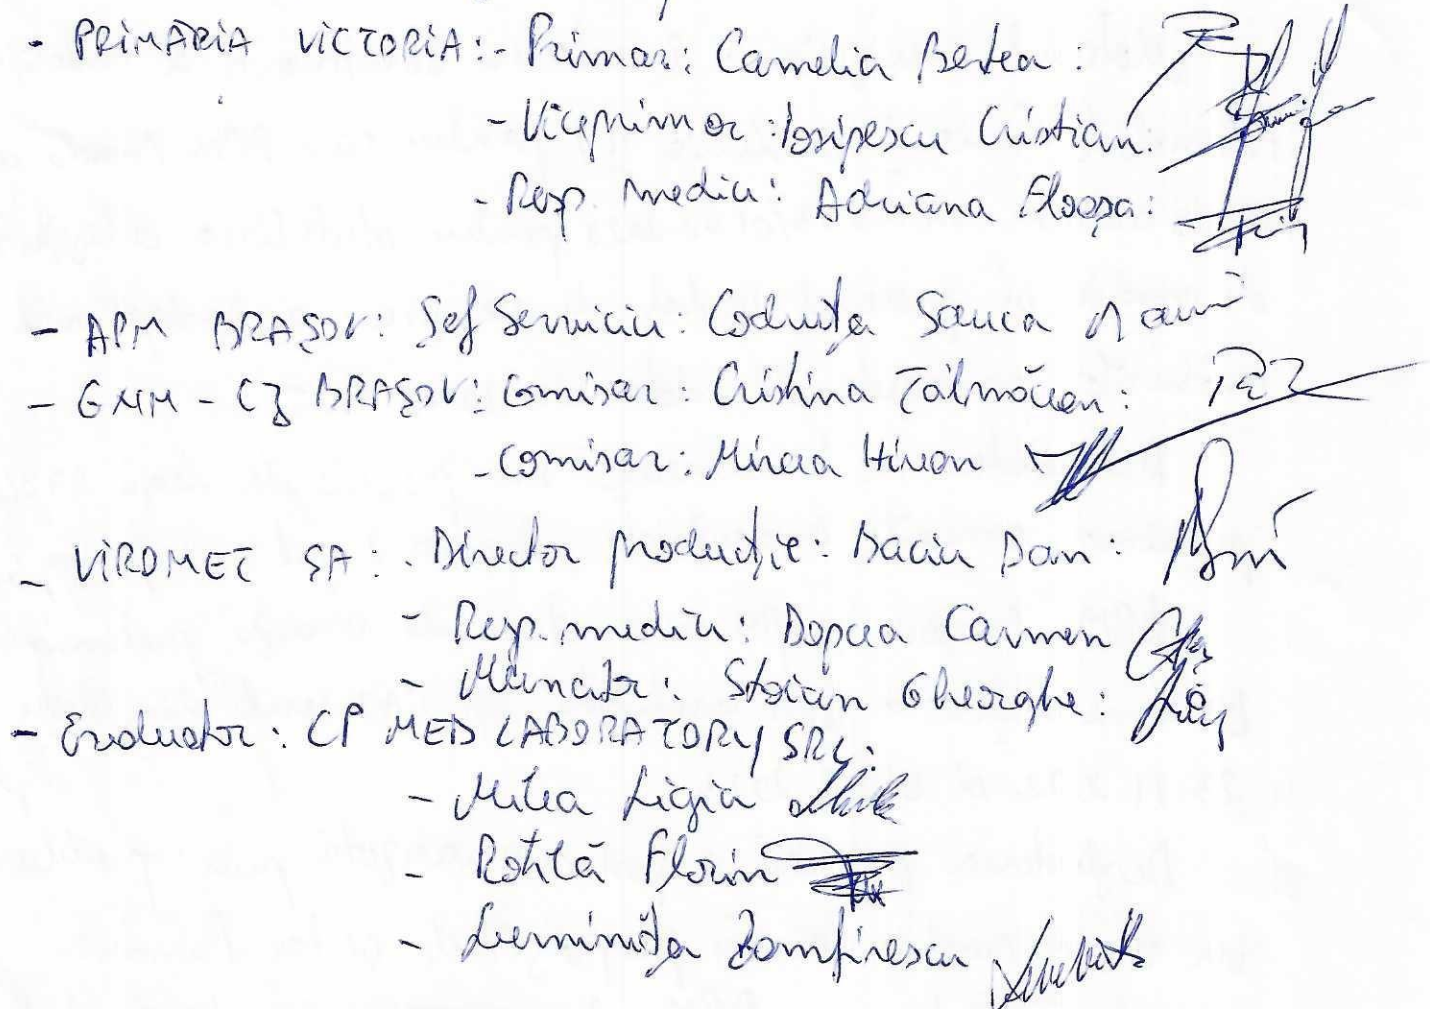 - PRIMĂRIA VICTORIA: - Primar: Camelia Bertea :
- Viceprimar : Iosipescu Cristian:
- Resp. mediu: Adriana Floașa:
- APM BRAȘOV: Șef Serviciu: Codruța Sauca
- GNM - CJ BRAȘOV: Comisar: Cristina Tălmăcean:
- comisar: Mircea Hirean
- VIROMET SA: - Director producție: Baciu Dan:
- Resp. mediu: Dopcea Carmen
- Muncitor: Stoian Gheorghe:
- Evaluator: CP MED LABORATORY SRL:
- Mitea Ligia
- Rotilă Florin
- Luminița Zamfirescu